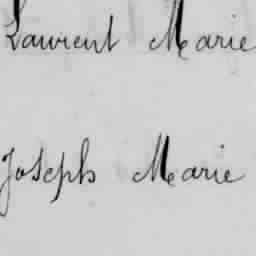 Laurent Marie
Joseph Marie